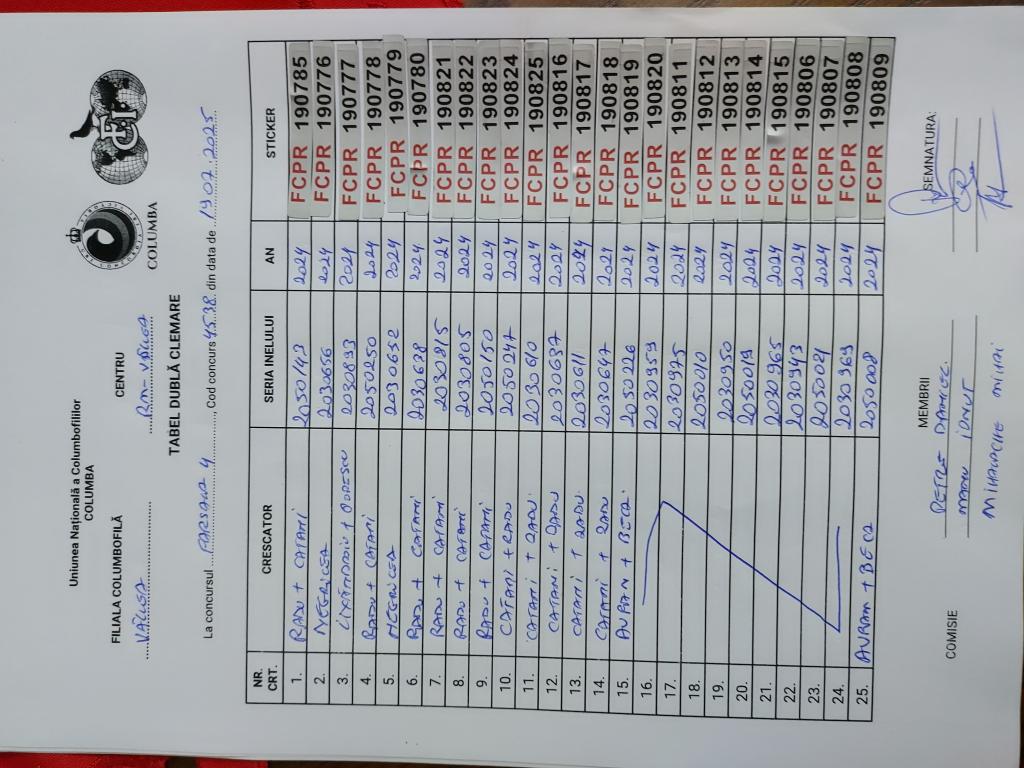 Uniunea Națională a Columbofililor
COLUMBA
COLUMBA
FCI
FILIALA COLUMBOFILĂ CENTRU
VÂLCEA RM-VÂLCEA
TABEL DUBLĂ CLEMARE
La concursul FARSANA 4, Cod concurs 4538 din data de 19.07.2025
NR. CRT. CRESCATOR SERIA INELULUI AN STICKER
1. RADU + CATANI 2050143 2024 FCPR 190785
2. NEGRICEA 2030656 2024 FCPR 190776
3. + OPRESCU 2030893 2024 FCPR 190777
4. RADU + CATANI 2050250 2024 FCPR 190778
5. NEGRICEA 2030692 2024 FCPR 190779
6. RADU + CATANI 2030638 2024 FCPR 190780
7. RADU + CATANI 2030815 2024 FCPR 190821
8. RADU + CATANI 2030805 2024 FCPR 190822
9. RADU + CATANI 2050150 2024 FCPR 190823
10. CATANI + RADU 2050247 2024 FCPR 190824
11. CATANI + RADU 2030610 2024 FCPR 190825
12. CATANI + RADU 2030637 2024 FCPR 190816
13. CATANI + RADU 2030611 2024 FCPR 190817
14. CATANI + RADU 2030647 2024 FCPR 190818
15. AVRAM + BECA 2050226 2024 FCPR 190819
16. 2030959 2024 FCPR 190820
17. 2030975 2024 FCPR 190811
18. 2050010 2024 FCPR 190812
19. 2030950 2024 FCPR 190813
20. 2050019 2024 FCPR 190814
21. 2030965 2024 FCPR 190815
22. 2030943 2024 FCPR 190806
23. 2050021 2024 FCPR 190807
24. 2030969 2024 FCPR 190808
25. AVRAM + BECA 2050008 2024 FCPR 190809
COMISIE MEMBRII SEMNATURA:
PETRE DANIEL
MANU IONUT
MIHALACHE MIHAI